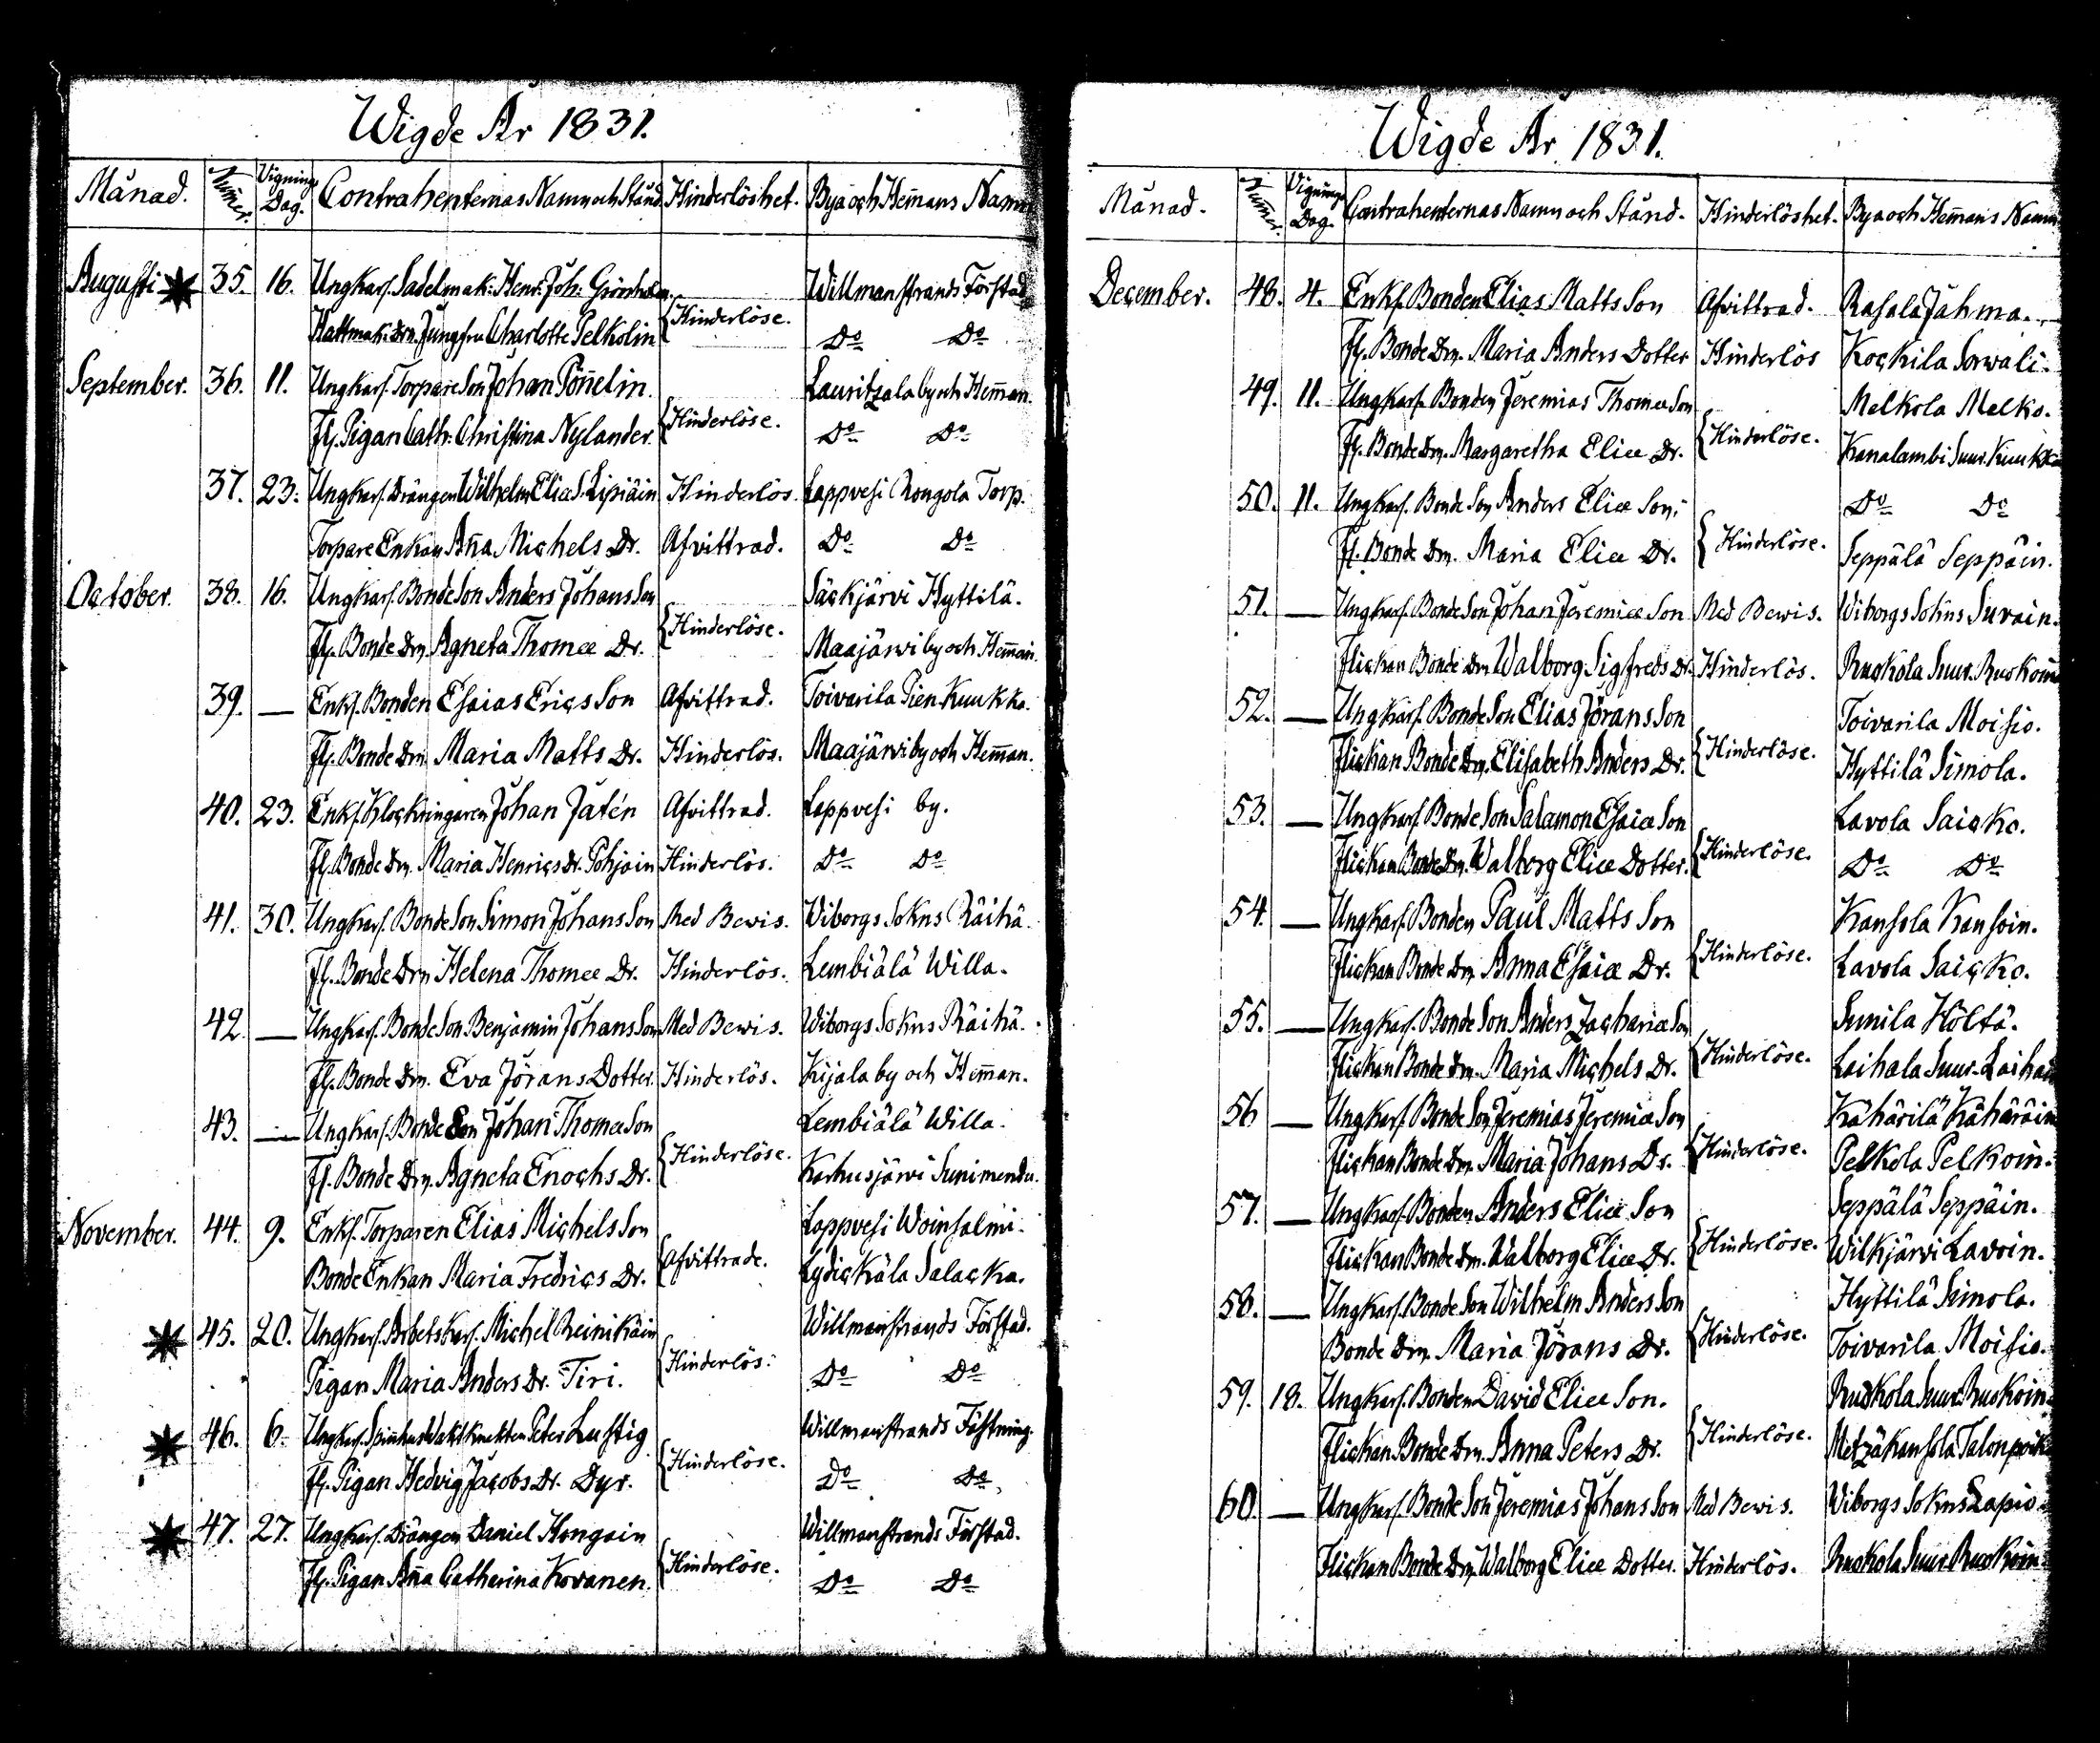 Wigde År 1831.
Månad. Num̃er. Vignings Dag. Contrahenternas Namn och Stånd. Hinderlöshet. Bya och Hem̃ans Namn
Augusti 35. 16. Ungkarl. Sadelmak: Henr: Joh: Grönholm. Willmanstrands Förstad
Hattmak: Drn. Jungfru Charlotte Pelkolin {Hinderlöse. Do Do
September. 36. 11. Ungkarl. Torpare Son Johan Pön̄elin. Lauritzala by och Hem̃an.
Fl. Pigan Cath: Christina Nylander. {Hinderlöse. Do Do
37. 23. Ungkarl. Drängen Wilhelm Eliæ S. Lipiäin Hinderlös. Lappvesi Rongola Torp.
Torpare Enkan An̄a Michels Dr. Afvittrad. Do Do
October. 38. 16. Ungkarl. Bonde Son Anders Johans Son Säckjärvi Hyttilä.
Fl. Bonde Drn. Agneta Thomæ Dr. {Hinderlöse. Maajärvi by och Hem̃an.
39. — Enkl. Bonden Esaias Erics Son Afvittrad. Toivarila Pien Kuukka.
Fl. Bonde Drn. Maria Matts Dr. Hinderlös. Maajärvi by och Hem̃an.
40. 23. Enkl. Klockringaren Johan Jatén Afvittrad. Lappvesi by.
Fl. Bonde Drn. Maria Henrics Dr. Pohjain Hinderlös. Do Do
41. 30. Ungkarl. Bonde Son Simon Johans Son Med Bewis. Viborgs Sokns Räihä.
Fl. Bonde Drn Helena Thomæ Dr. Hinderlös. Lembiälä Willa.
42. — Ungkarl. Bonde Son Benjamin Johans Son Med Bewis. Wiborgs Sokns Räihä.
Fl. Bonde Drn. Eva Jörans Dotter. Hinderlös. Kijala by och Hem̃an.
43. — Ungkarl. Bonde Son Johan Thomæ Son Lembiälä Willa.
Fl. Bonde Drn. Agneta Enochs Dr. {Hinderlöse. Karhusjärvi Sunimendu.
November. 44. 9. Enkl. Torparen Elias Michels Son Lappvesi Woinsalmi.
Bonde Enkan Maria Fredrics Dr. {Afvittrade. Lydickälä Salacka.
45. 20. Ungkarl. Arbetskarl. Michel Reinikäin Willmanstrands Förstad.
Pigan Maria Anders Dr. Tiri. {Hinderlös. Do Do
46. 6. Ungkarl. Spinhus Waktknekten Peter Lustig Willmanstrands Fästning.
Fl. Pigan Hedvig Jacobs Dr. Dyr. {Hinderlöse. Do Do
47. 27. Ungkarl. Drängen Daniel Hongain Willmanstrands Förstad.
Fl. Pigan An̄a Catharina Kovanen. {Hinderlöse. Do Do
Wigde År 1831.
Månad. Num̃er. Vignings Dag. Contrahenternas Namn och Stånd. Hinderlöshet. Bya och Hem̃ans Namn
December. 48. 4. Enkl. Bonden Elias Matts Son Afvittrad. Rasala Jahma.
Fl. Bonde Drn. Maria Anders Dotter Hinderlös Kockila Sorvali.
49. 11. Ungkarl. Bonden Jeremias Thomæ Son Melkola Melko.
Fl. Bonde Drn. Margaretha Eliæ Dr. {Hinderlöse. Kanalambi Suur Kuukka
50. 11. Ungkarl. Bonde Son Anders Eliæ Son. Do Do
Fl. Bonde Drn. Maria Eliæ Dr. {Hinderlöse. Seppälä Seppäin.
51. — Ungkarl. Bonde Son Johan Jeremiæ Son Med Bewis. Wiborgs Sokns Suvain.
Flickan Bonde Drn Walborg Sigfreds Dr. Hinderlös. Ruokola Suur Ruokoin
52. — Ungkarl. Bonde Son Elias Jörans Son Toivarila Moisio.
Flickan Bonde Drn. Elisabeth Anders Dr. {Hinderlöse. Hyttilä Simola.
53. — Ungkarl. Bonde Son Salamon Esaiæ Son Lavola Saicko.
Flickan Bonde Drn. Walborg Eliæ Dotter. {Hinderlöse. Do Do
54. — Ungkarl. Bonden Paul Matts Son Kansola Kansoin.
Flickan Bonde Drn. Anna Esaiæ Dr. {Hinderlöse. Lavola Saicko.
55. — Ungkarl. Bonde Son Anders Zachariæ Son Sunila Höltä.
Flickan Bonde Drn. Maria Michels Dr. {Hinderlöse. Laihala Suur-Laihan
56 — Ungkarl. Bonde Son Jeremias Jeremiæ Son Kähärilä Kähäräin
Flickan Bonde Drn. Maria Johans Dr. {Hinderlöse. Pelkola Pelkoin.
57. — Ungkarl. Bonden Anders Eliæ Son Seppälä Seppäin.
Flickan Bonde Drn. Walborg Eliæ Dr. {Hinderlöse. Wilkjärvi Lavoin.
58. — Ungkarl. Bonde Son Wilhelm Anders Son Hyttilä Simola.
Bonde Drn. Maria Jörans Dr. {Hinderlöse. Toivarila Moisio.
59. 18. Ungkarl. Bonden David Eliæ Son. Ruokola Suur Ruokoin.
Flickan Bonde Drn. Anna Peters Dr. {Hinderlöse. Metzäkansola Talonpoik
60. — Ungkarl. Bonde Son Jeremias Johans Son Med Bewis. Viborgs Sokns Lapio
Flickan Bonde Drn Walborg Eliæ Dotter. Hinderlös. Ruokola Suur Ruokoin.